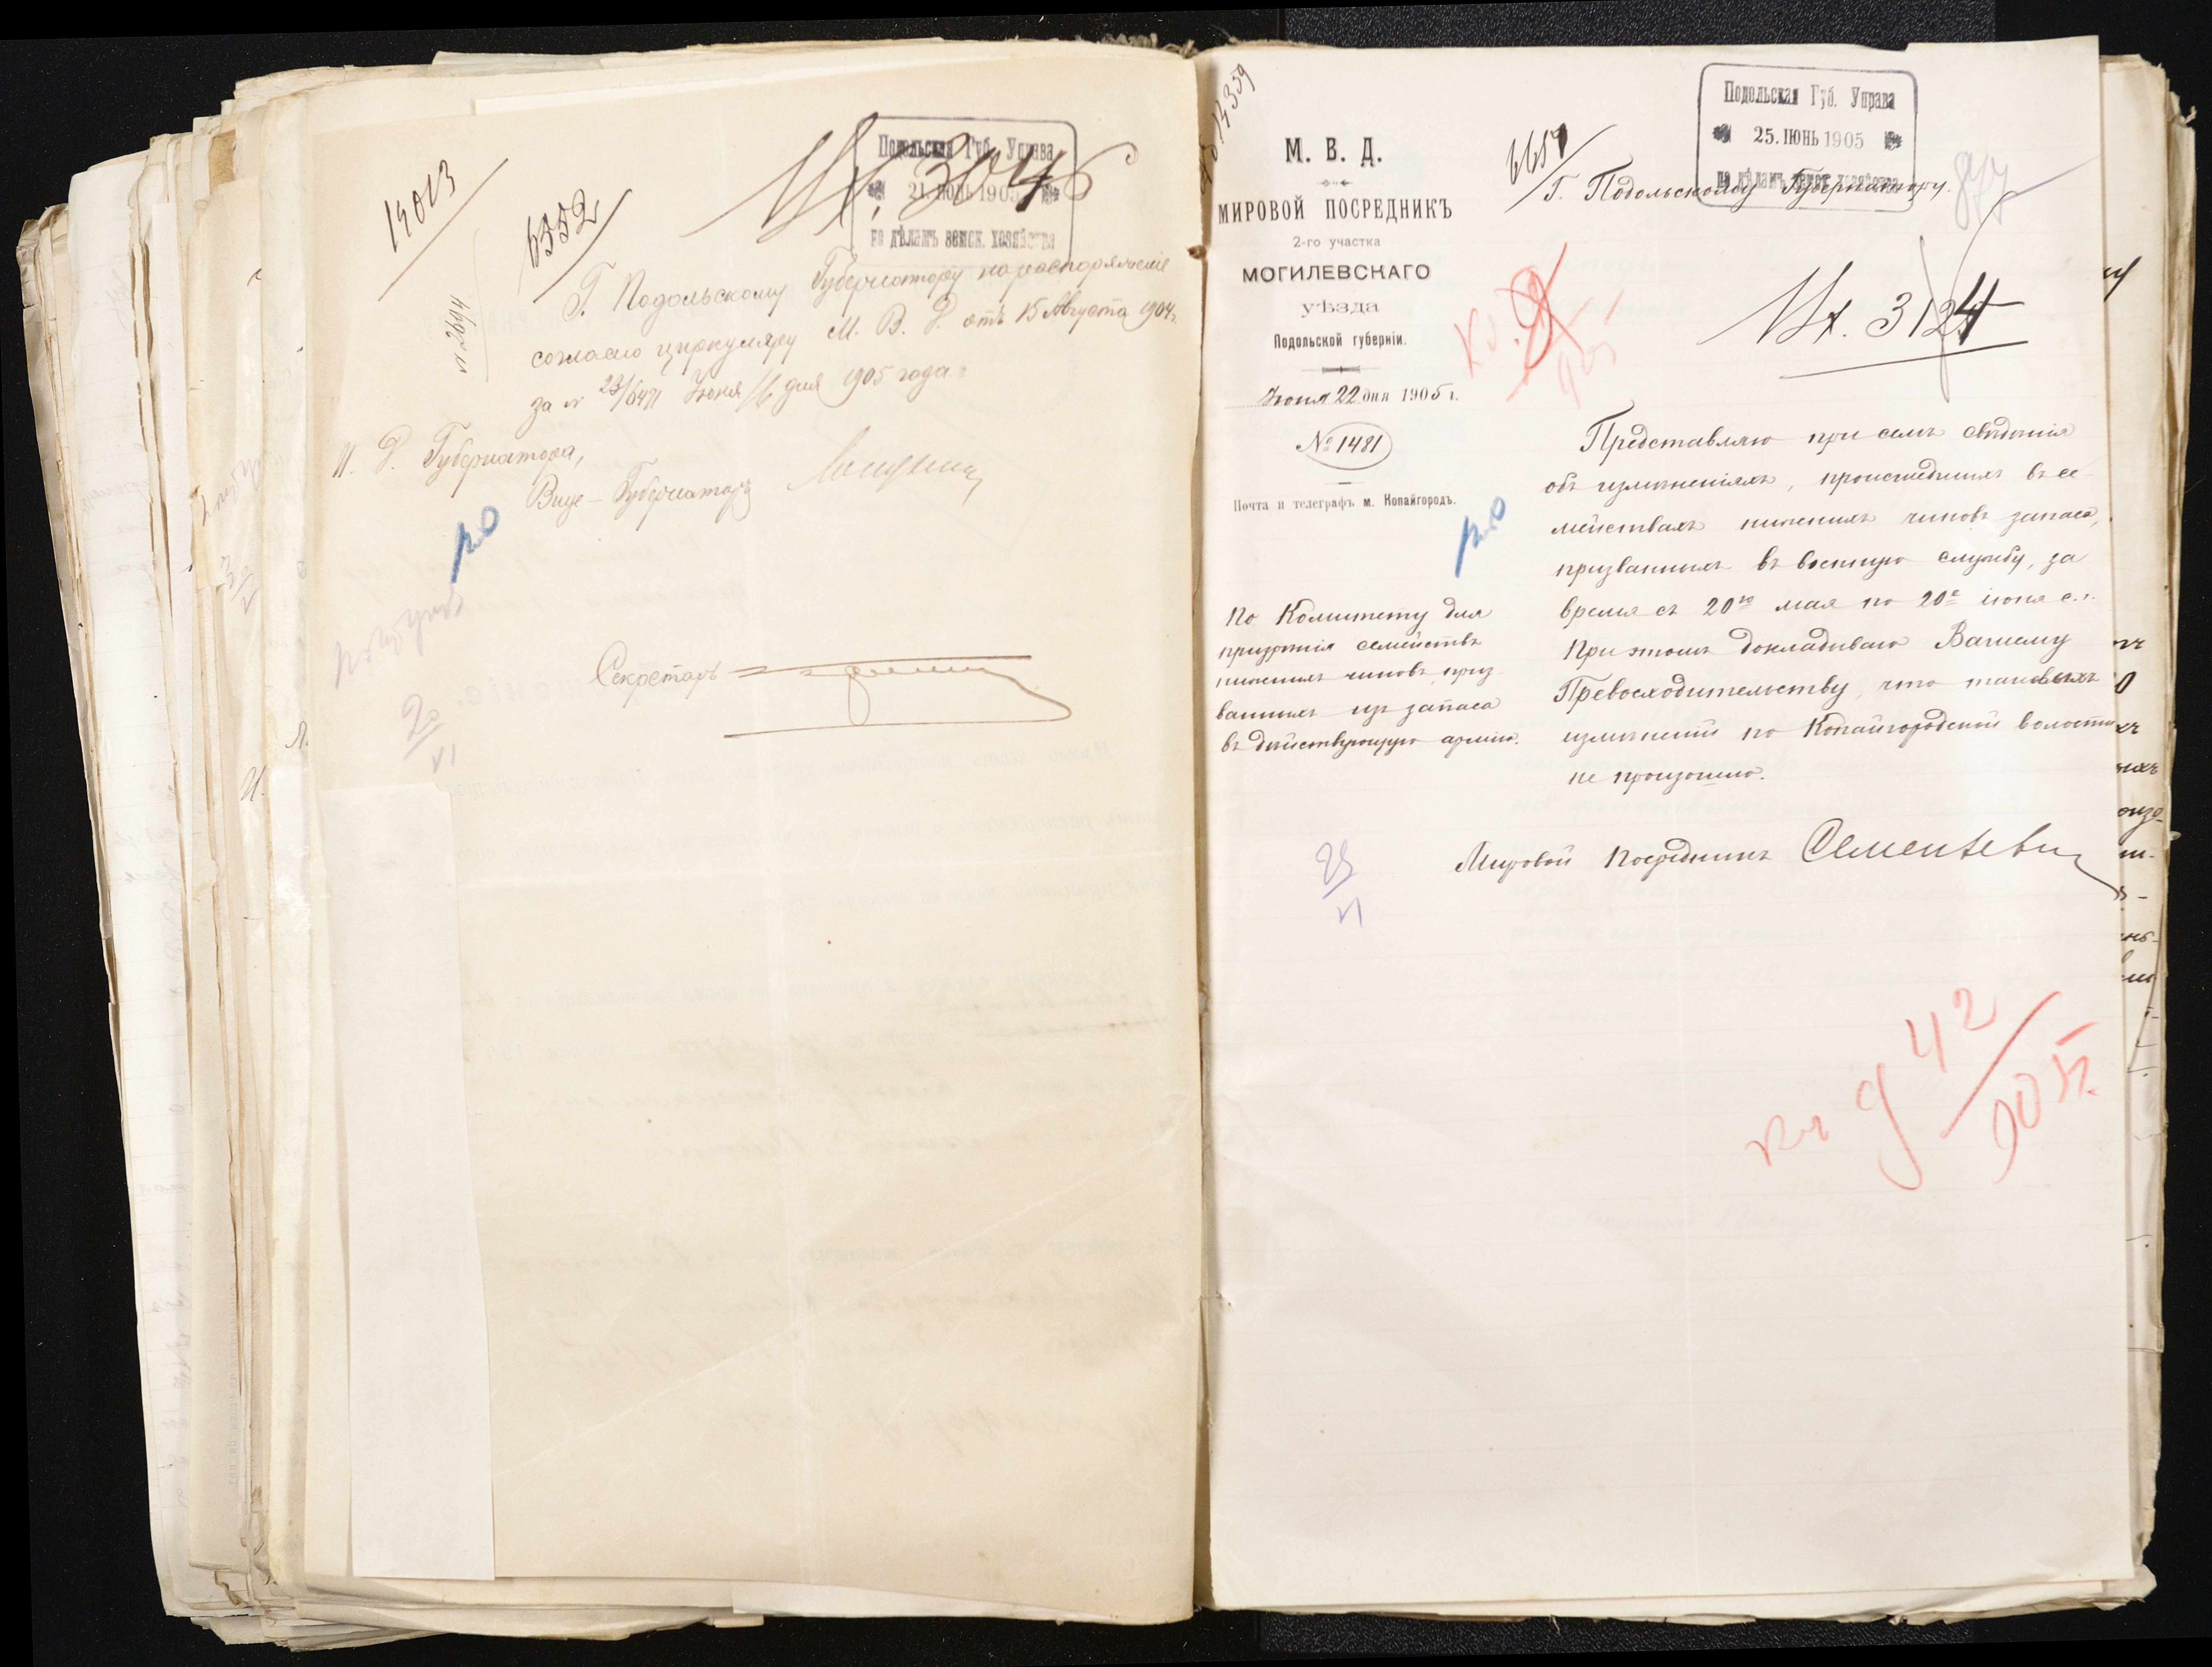 14013
6352
Вх. 3046
Подольская Губ. Управа
21. ІЮНЬ 1905
по дѣламъ земск. хозяйства
Г. Подольскому Губернатору на распоряженіе
согласно циркуляру М. В. Д. отъ 15 Августа 1904 г.
за № 23/6471 Іюня 16 дня 1905 года.
И. Д. Губернатора,
Вице-Губернаторъ
Секретарь
20/VI
14359
М. В. Д.
МИРОВОЙ ПОСРЕДНИКЪ
2-го участка
МОГИЛЕВСКАГО
уѣзда
Подольской губерніи.
Іюня 22 дня 1905 г.
№ 1481
Почта и телеграфъ м. Копайгородъ.
По Комитету для
призрѣнія семействъ
нижнихъ чиновъ, приз-
ванныхъ изъ запаса
въ дѣйствующую армію.
Подольская Губ. Управа
25. ІЮНЬ 1905
по дѣламъ земск. хозяйства
Г. Подольскому Губернатору.
Вх. 3124
Представляю при семъ свѣдѣнія
объ измѣненіяхъ, происшедшихъ въ се-
мействахъ нижнихъ чиновъ запаса,
призванныхъ въ военную службу, за
время съ 20го мая по 20е іюня с. г.
При этомъ докладываю Вашему
Превосходительству, что таковыхъ
измѣненій по Копайгородской волости
не произошло.
Мировой Посредникъ
25/VI
42/905